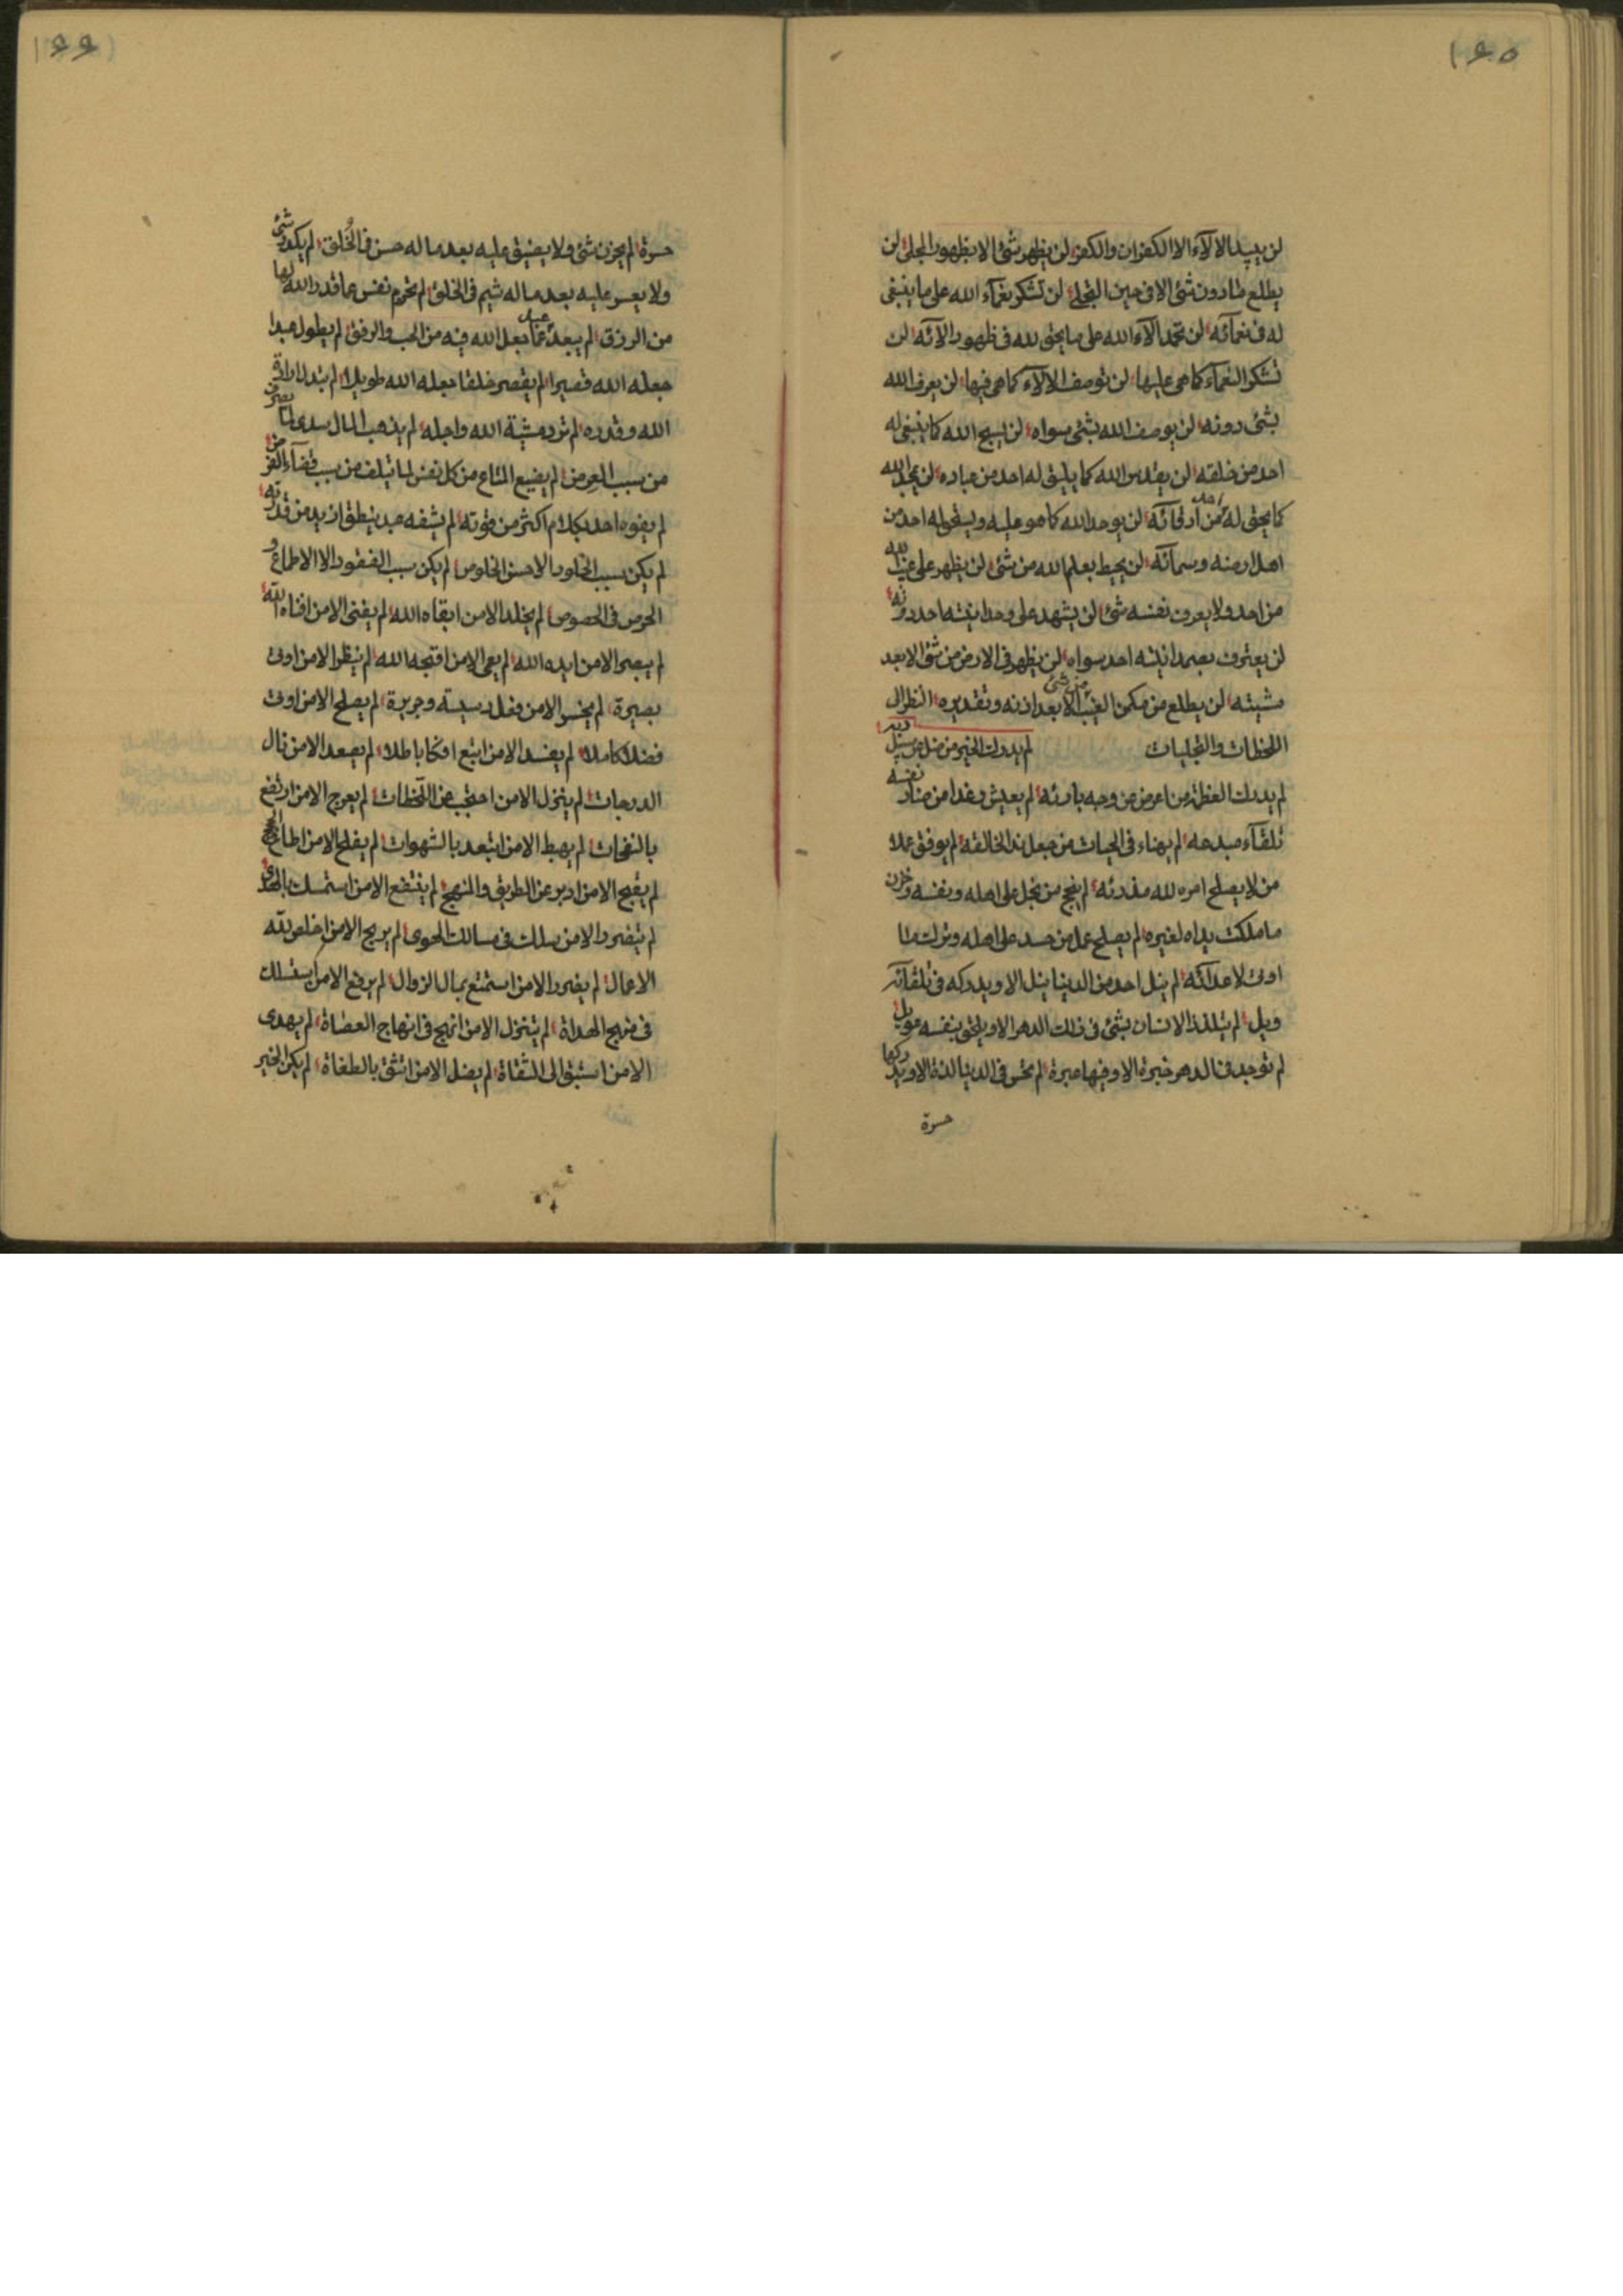 ١٦٥
لن يبيد الالآء الا الكفران والكفر لن يظهر شئ الا بظهور المجلى لن
يطلع طادون شئ الا فى حين التجلى لن تشكر نعمآء الله على ما ينبغى
له فى نعمآئه لن تحمد آلاء الله على ما يحق لله فى ظهور الآئه لن
تشكر النعمآء كما هى عليها لن توصف الالآء كما هى فيها لن يعرف الله
بشئ دونه لن يوصف الله بشئ سواه لن يسبح الله كما ينبغى له
احد من خلقه لن يقدس الله كما يليق له احد من عباده لن يمجد الله
كما يحق له احد من ارقائه لن يوحد الله كما هو عليه ويستحق له احد من
اهل ارضه وسمآئه لن يحيط بعلم الله من شئ لن يظهر على غيب الله
من احد ولا يعرف نفسه شئ لن يشهد على وحدانيته احد دونه
لن يعترف بصمدانيته احد سواه لن يظهر فى الارض من شئ الا بعد
مشيته لن يطلع من مكمن الغيب من شئ الا بعد اذنه وتقديره انظر الى
اللحظات والتجليات لم يدرك الخير من ضل عن سبيل
لم يدرك العظمة من اعرض عن وجه بارئه لم يعيش رغدا من نفسه
تلقآء مبدعه لم يهناء فى الحيات من جعل ندا لخالقه لم يوفق عملا
من لا يصلح امره لله مقدرته لم ينجح من بخل على اهله ونفسه وخزن
ما ملكت يداه لغيره لم يصلح عمل من حسد على اهله وترك ما
اوتى لاعدائه لم ينل احد من الدينا بنيل الا ويدركه فى تلقآئه
ويل لم يتلذذ الانسان بشئ فى ذلك الدهر الا ويلحق بنفسه عويل
لم توجد فى الدهر خبرة الا وفيها عبرة لم تحس فى الدنيا لذة الا ويدركها
حسرة
١٦٦
حسرة لم يحزن شئ ولا يضيق عليه بعد ما له حسن فى الخلق لم يكدر شئ
ولا يعسر عليه بعد ما له شيم فى الخلق لم تحرم نفس عما قدر الله لها
من الرزق لم يبعد عبد عما جعل الله فيه من الحب والرفق لم يطول عبدا
جعله الله قصيرا لم يقصر خلقا جعله الله طويلا لم يتبدل ارادة
الله وقدره لم ترد مشية الله واجله لم يذهب المال سدى لما يصرف
من سبب العرض لم يضيع المتاع من كل نفس لما يتلف من سبب قضآء الفرض
لم يفوه احد بكلام اكثر من قوته لم يشفه عبد بنطق ازيد من قدرته
لم يكن سبب الخلود الا حسن الخلوص لم يكن سبب الفقود الا الاطماع و
الحرص فى الخصوص لم يخلد الا من ابقاه الله لم يفنى الا من افناه الله
لم يبصر الا من ايده الله لم يعمى الا من اقبحه الله لم ينظر الا من اوتى
بصيرة لم يخسر الا من فعل رسيسة وجريرة لم يصلح الا من اوتى
فضلا كاملا لم يفسد الا من اتبع افكا باطلا لم يصعد الا من نال
الدرجات لم ينزل الا من احتجب عن اللحظات لم يعرج الا من ارتفع
بالنفحات لم يهبط الا من ابتعد بالشهوات لم يفلح الا من اطاع
لم يقبح الا من ادبر عن الطريق والمنهج لم ينتفع الا من استمسك بالهدى
لم يتضرر الا من سلك فى مسالك الهوى لم يربح الا من اخلص لله
الاعمال لم يضرر الا من استمتع بمال الزوال لم يرفع الا من استسلك
فى منهج الهداة لم يتنزل الا من انهج فى انهاج العصاة لم يهدى
الا من استبق الى الثقاة لم يضل الا من اتثق بالطغاة لم يكن الخير